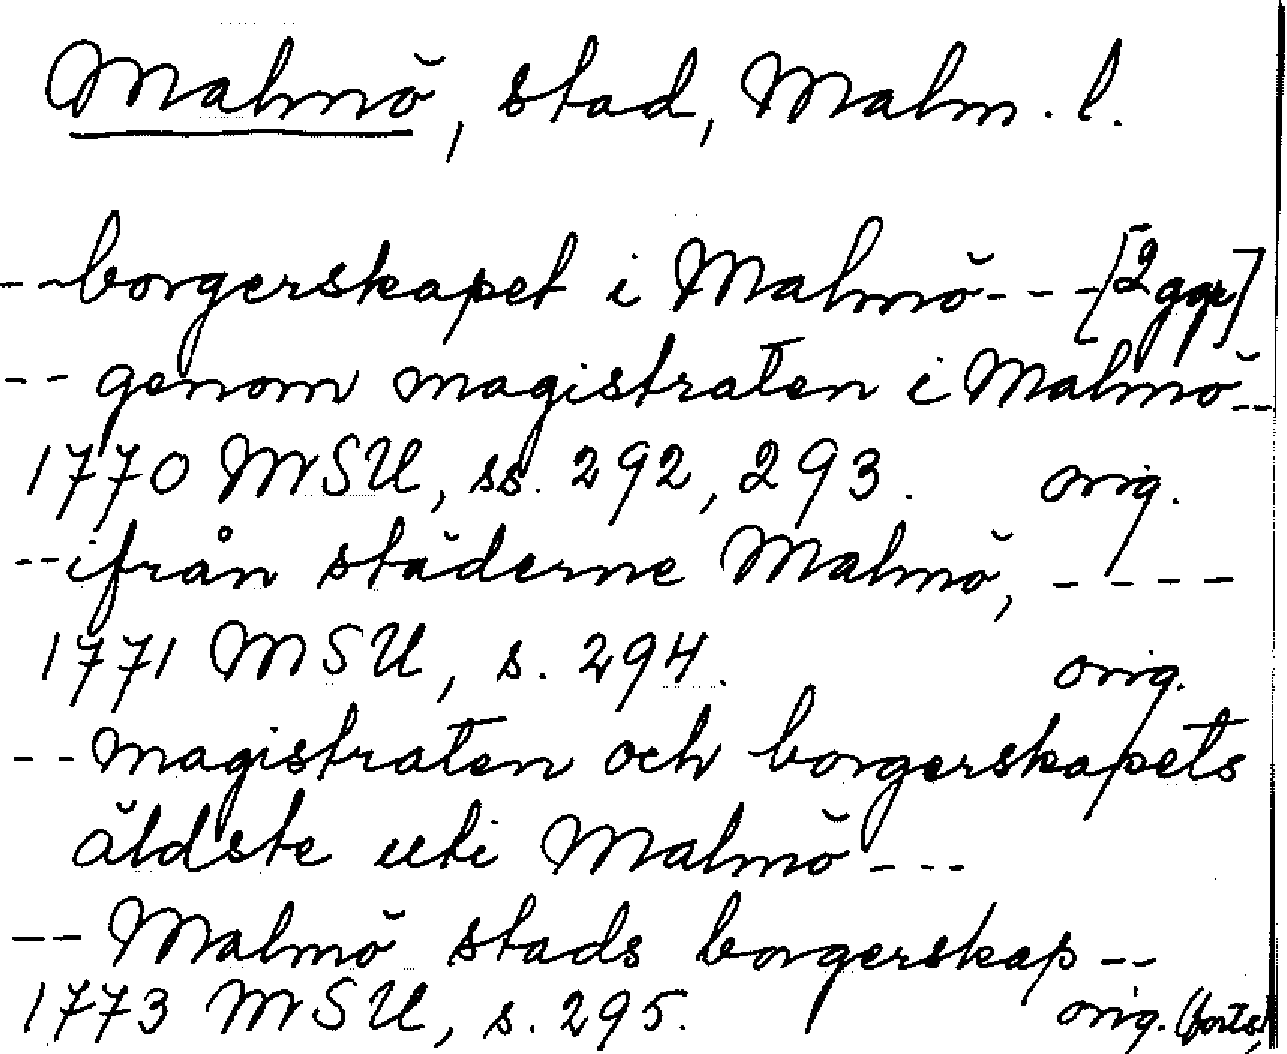 Malmö, stad, Malm. l.
--borgerskapet i Malmö---[2 ggr]
-- genom magistraten i Malmö--
1770 MSU, ss. 292, 293. orig.
--ifrån städerne Malmö, ----
1771 MSU, s. 294. orig.
--magistraten och borgerskapets
äldste uti Malmö---
--Malmö stads borgerskap--
1773 MSU, s. 295. orig. (forts)